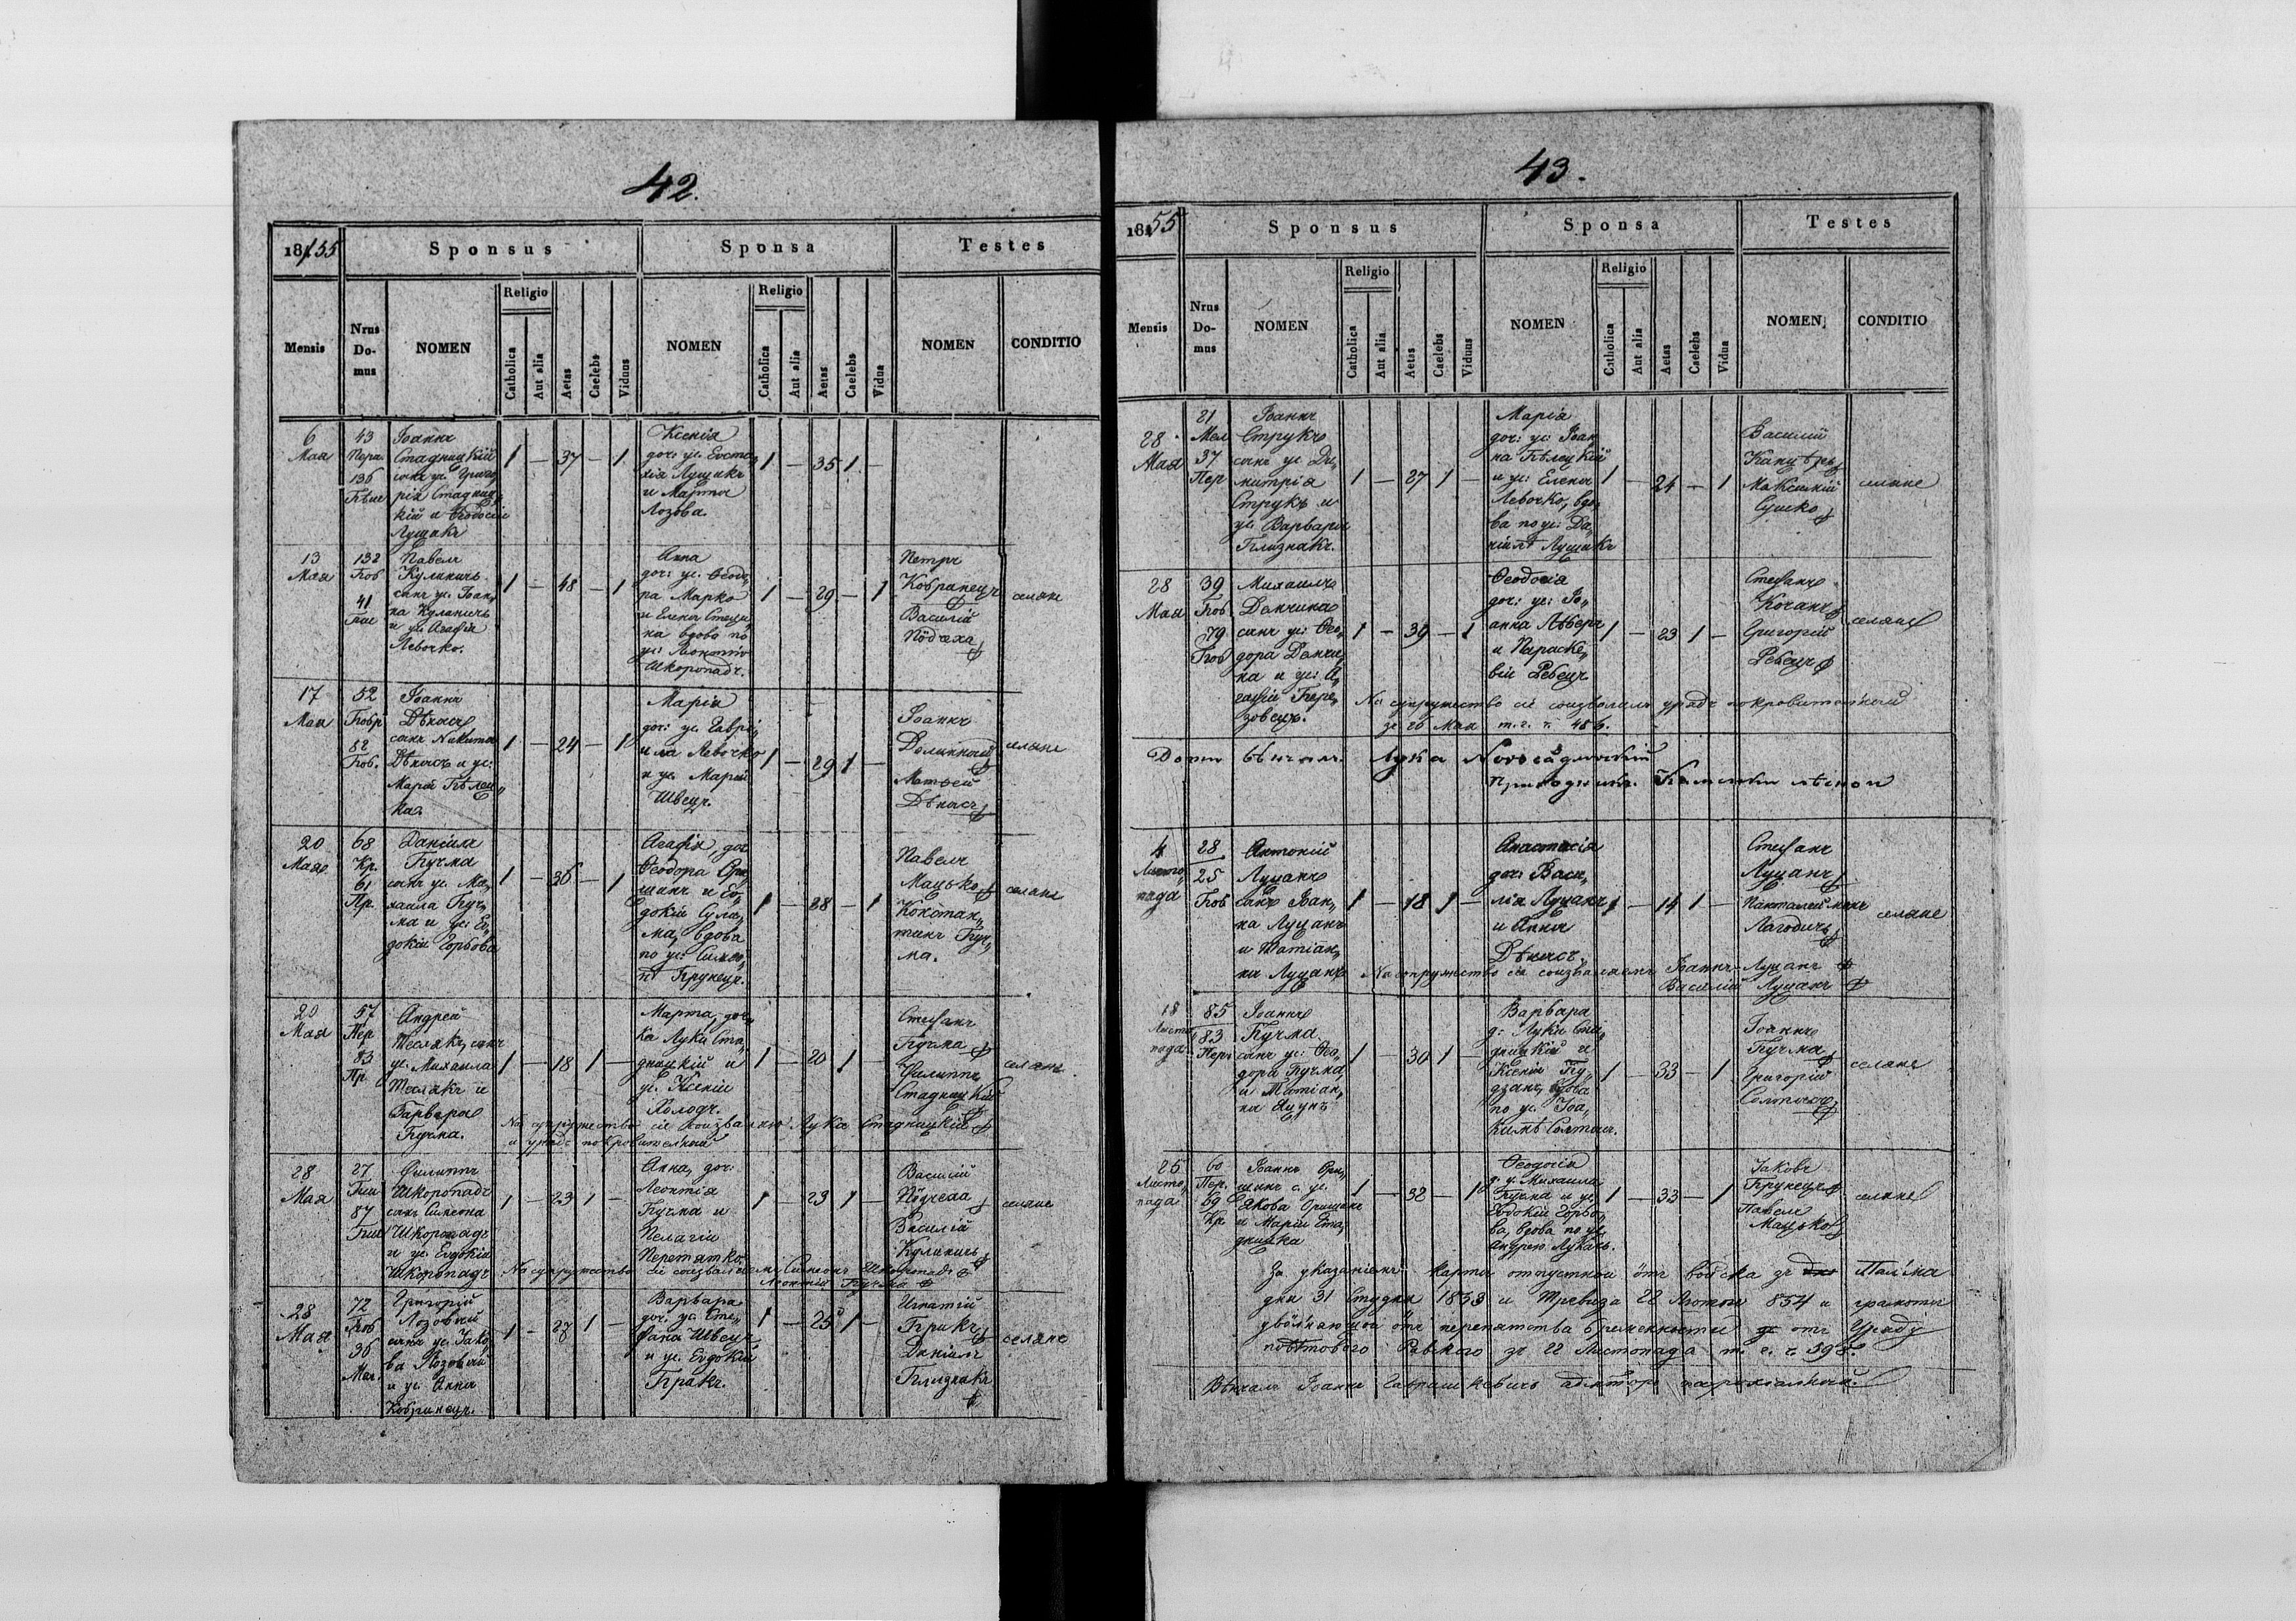 42.
1855
Sponsus
Sponsa
Testes
Mensis
Nrus Domus
NOMEN
Religio
Catholica
Aut alia
Aetas
Caelebs
Viduus
NOMEN
Religio
Catholica
Aut alia
Aetas
Caelebs
Vidua
NOMEN
CONDITIO
6 Мая
43
136
Іоаннъ
Стадницкій
сынъ ус. Григо„
рія Стадниц„
кій и Θеодосіи
Лущакъ
1 — 37 — 1
Ксенія
доч: ус. Евста„
хія Лущакъ
и Марта
Лозова
1 — 35 1 —
13 Мая
132 Боб
41
Павелъ
Куликичь
сынъ ус. Іоан„
на Куликичь
и ус. Агафія
Левочко.
1 — 48 — 1
Анна
доч: ус. Θеодо„
ра Марко
и Елена Стеци„
на вдова по
ус. Леонтію
Шкоропадъ.
1 — 29 — 1
Петръ
Кобринецъ
Василій
Подчаха
селяне
17 Мая
52
82 Боб.
Іоаннъ
Дѣкасъ
сынъ Никита
Дѣкасъ и ус:
Марія Бѣлец„
ка
1 — 24 — 1
Марія
доч: ус. Гаврі„
ила Левочко
и ус. Марія
Швецъ.
1 — 29 1 —
Іоаннъ
Долинный
Матѳей
Дѣкасъ
селяне
20 Мая
68 Кр.
61 Пр.
Даніилъ
Бучма
сынъ ус. Ми„
хаила Буч„
ма и ус. Ев„
докіи Горбова
1 — 36 — 1
Агафія, доч
Θеодора Ори„
шинъ и Ев„
докіи Сули„
ма, вдова
по ус. Симео„
нѣ Брунецъ.
1 — 28 — 1
Павелъ
Мацько
Констан„
тинъ Буч„
ма.
селяне
20 Мая
57 Пер
83 Пр.
Андрей
Теслякъ, сынъ
ус. Михаила
Теслякъ и
Варвара
Бучма.
1 — 18 1 —
Марта, доч„
ка Луки Ста„
дницкій и
ус. Ксеніи
Холодъ.
1 — 20 1 —
Стефанъ
Бучма
Филиппъ
Стадницкій
селяне
На супружество сіе соизваляю Лука Стадницкій
и урядъ покровителный
28 Мая
27
87
Филиппъ
Шкоропадъ
сынъ Симеона
Шкоропадъ
и ус. Евдокіи
Шкоропадъ
1 — 23 1 —
Анна, доч:
Леонтія
Бучма и
Пелагіи
Перетятко.
1 — 23 1 —
Василій
Подчаха
Василій
Куликичь
селяне
На супружество сіе соизваляемъ Симеонъ Шкоропадъ
Леонтій Бучма
28 Мая
72 Боб
36
Григорій
Лозовый
сынъ ус. Іако„
ва Лозовый
и ус. Анна
Кобринецъ.
1 — 27 1 —
Варвара
доч: ус. Сте„
фана Швецъ
и ус. Евдокіи
Бракъ.
1 — 25 1 —
Игнатій
Бракъ
Даніилъ
Близнакъ
селяне
43.
1855
Sponsus
Sponsa
Testes
Mensis
Nrus Domus
NOMEN
Religio
Catholica
Aut alia
Aetas
Caelebs
Viduus
NOMEN
Religio
Catholica
Aut alia
Aetas
Caelebs
Vidua
NOMEN
CONDITIO
28 Мая
21 Мел
37 Пер
Іоаннъ
Струкъ
сынъ ус. Ди„
митрія
Струкъ и
ус. Варвары
Близнакъ.
1 — 27 1 —
Марія
доч: ус. Іоан„
на Бѣлецкій
и ус: Елена
Левочко, вдо„
ва по ус. Да„
ніилѣ Лущикъ
1 — 24 — 1
Василій
Максимъ
Сушко
селяне
28 Мая
39 Боб
79 Боб
Михаилъ
Данчина
сынъ ус: Θео„
дора Данчи„
на и ус: А„
гафіи Бере„
зовецъ.
1 — 39 — 1
Θеодосія
доч: ус: Іо„
анна
и Параске„
вій Ребецъ
1 — 23 1 —
Стефанъ
Кочанъ
Григорій
Ребецъ
селяне
На супружество сіе соизволилъ урядъ покровителный
зъ 26 Мая т. г. ч. 486.
вѣнчалъ Лука
4 Листо„
пада
28
25 Боб
Антоній
Луцанъ
сынъ Іоан„
на Луцанъ
и Татіан„
ны Луцанъ
1 — 18 1 —
Анастасія
доч: Васи„
лія Луцанъ
и Анна
Дѣкасъ.
1 — 14 1 —
Стефанъ
Луцанъ
Пантелеймонъ
Лагодичь
селяне
На супружество сіе соизваляемъ Іоаннъ Луцанъ
Василій Луцанъ
18 Листо„
пада
85
83 Пер
Іоаннъ
Бучма
сынъ ус: Θео„
дора Бучма,
и Татіан„
на Яцунъ
1 — 30 1 —
Варвара
д: Луки Ста„
дницкій и
Ксенія Бу„
дзанъ, вдова
по ус. Іоа„
кимѣ Солтысъ.
1 — 33 — 1
Іоаннъ
Бучма
Григорій
Солтысъ
селяне
25 Листо„
пада
60 Пер.
69 Кр
Іоаннъ Ори„
шинъ с. ус.
Якова Оришинъ
и Марія Ста„
дницка
1 — 32 — 1
Θеодосія
д. ус. Михаила
Бучма и ус.
Евдокіи Горбо„
ва, вдова по ус.
Андрею Лукачь.
1 — 33 — 1
Іаковъ
Брунецъ
Павелъ
Мацько
селяне
За указаніемъ карты отпустной отъ войска зъ
дня 31 Студня 1853 и 22 Лютого 854 и грамоты
увольняющой отъ перепятства бременности отъ Уряду
повѣтового Равского зъ 22 Листопада т. г. ч. 598.
Вѣнчалъ Іоаннъ Гаврышкевичь парохіалный.